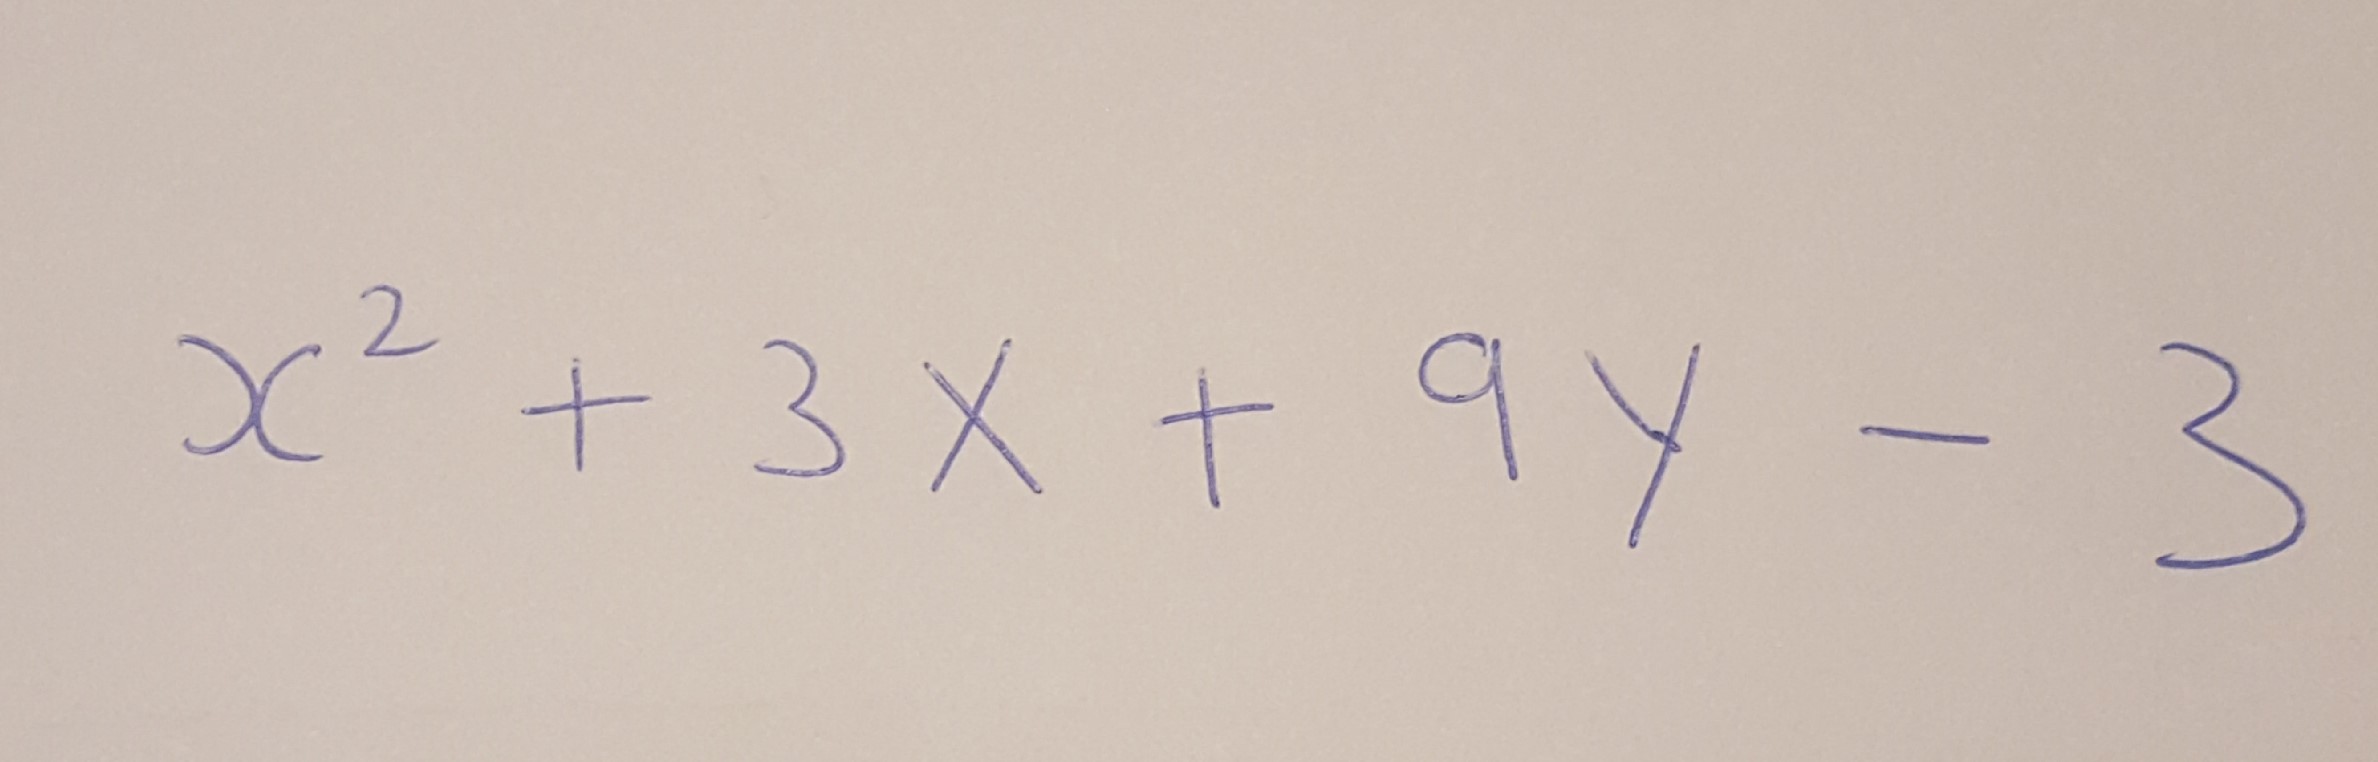 x² + 3x + 9y - 3